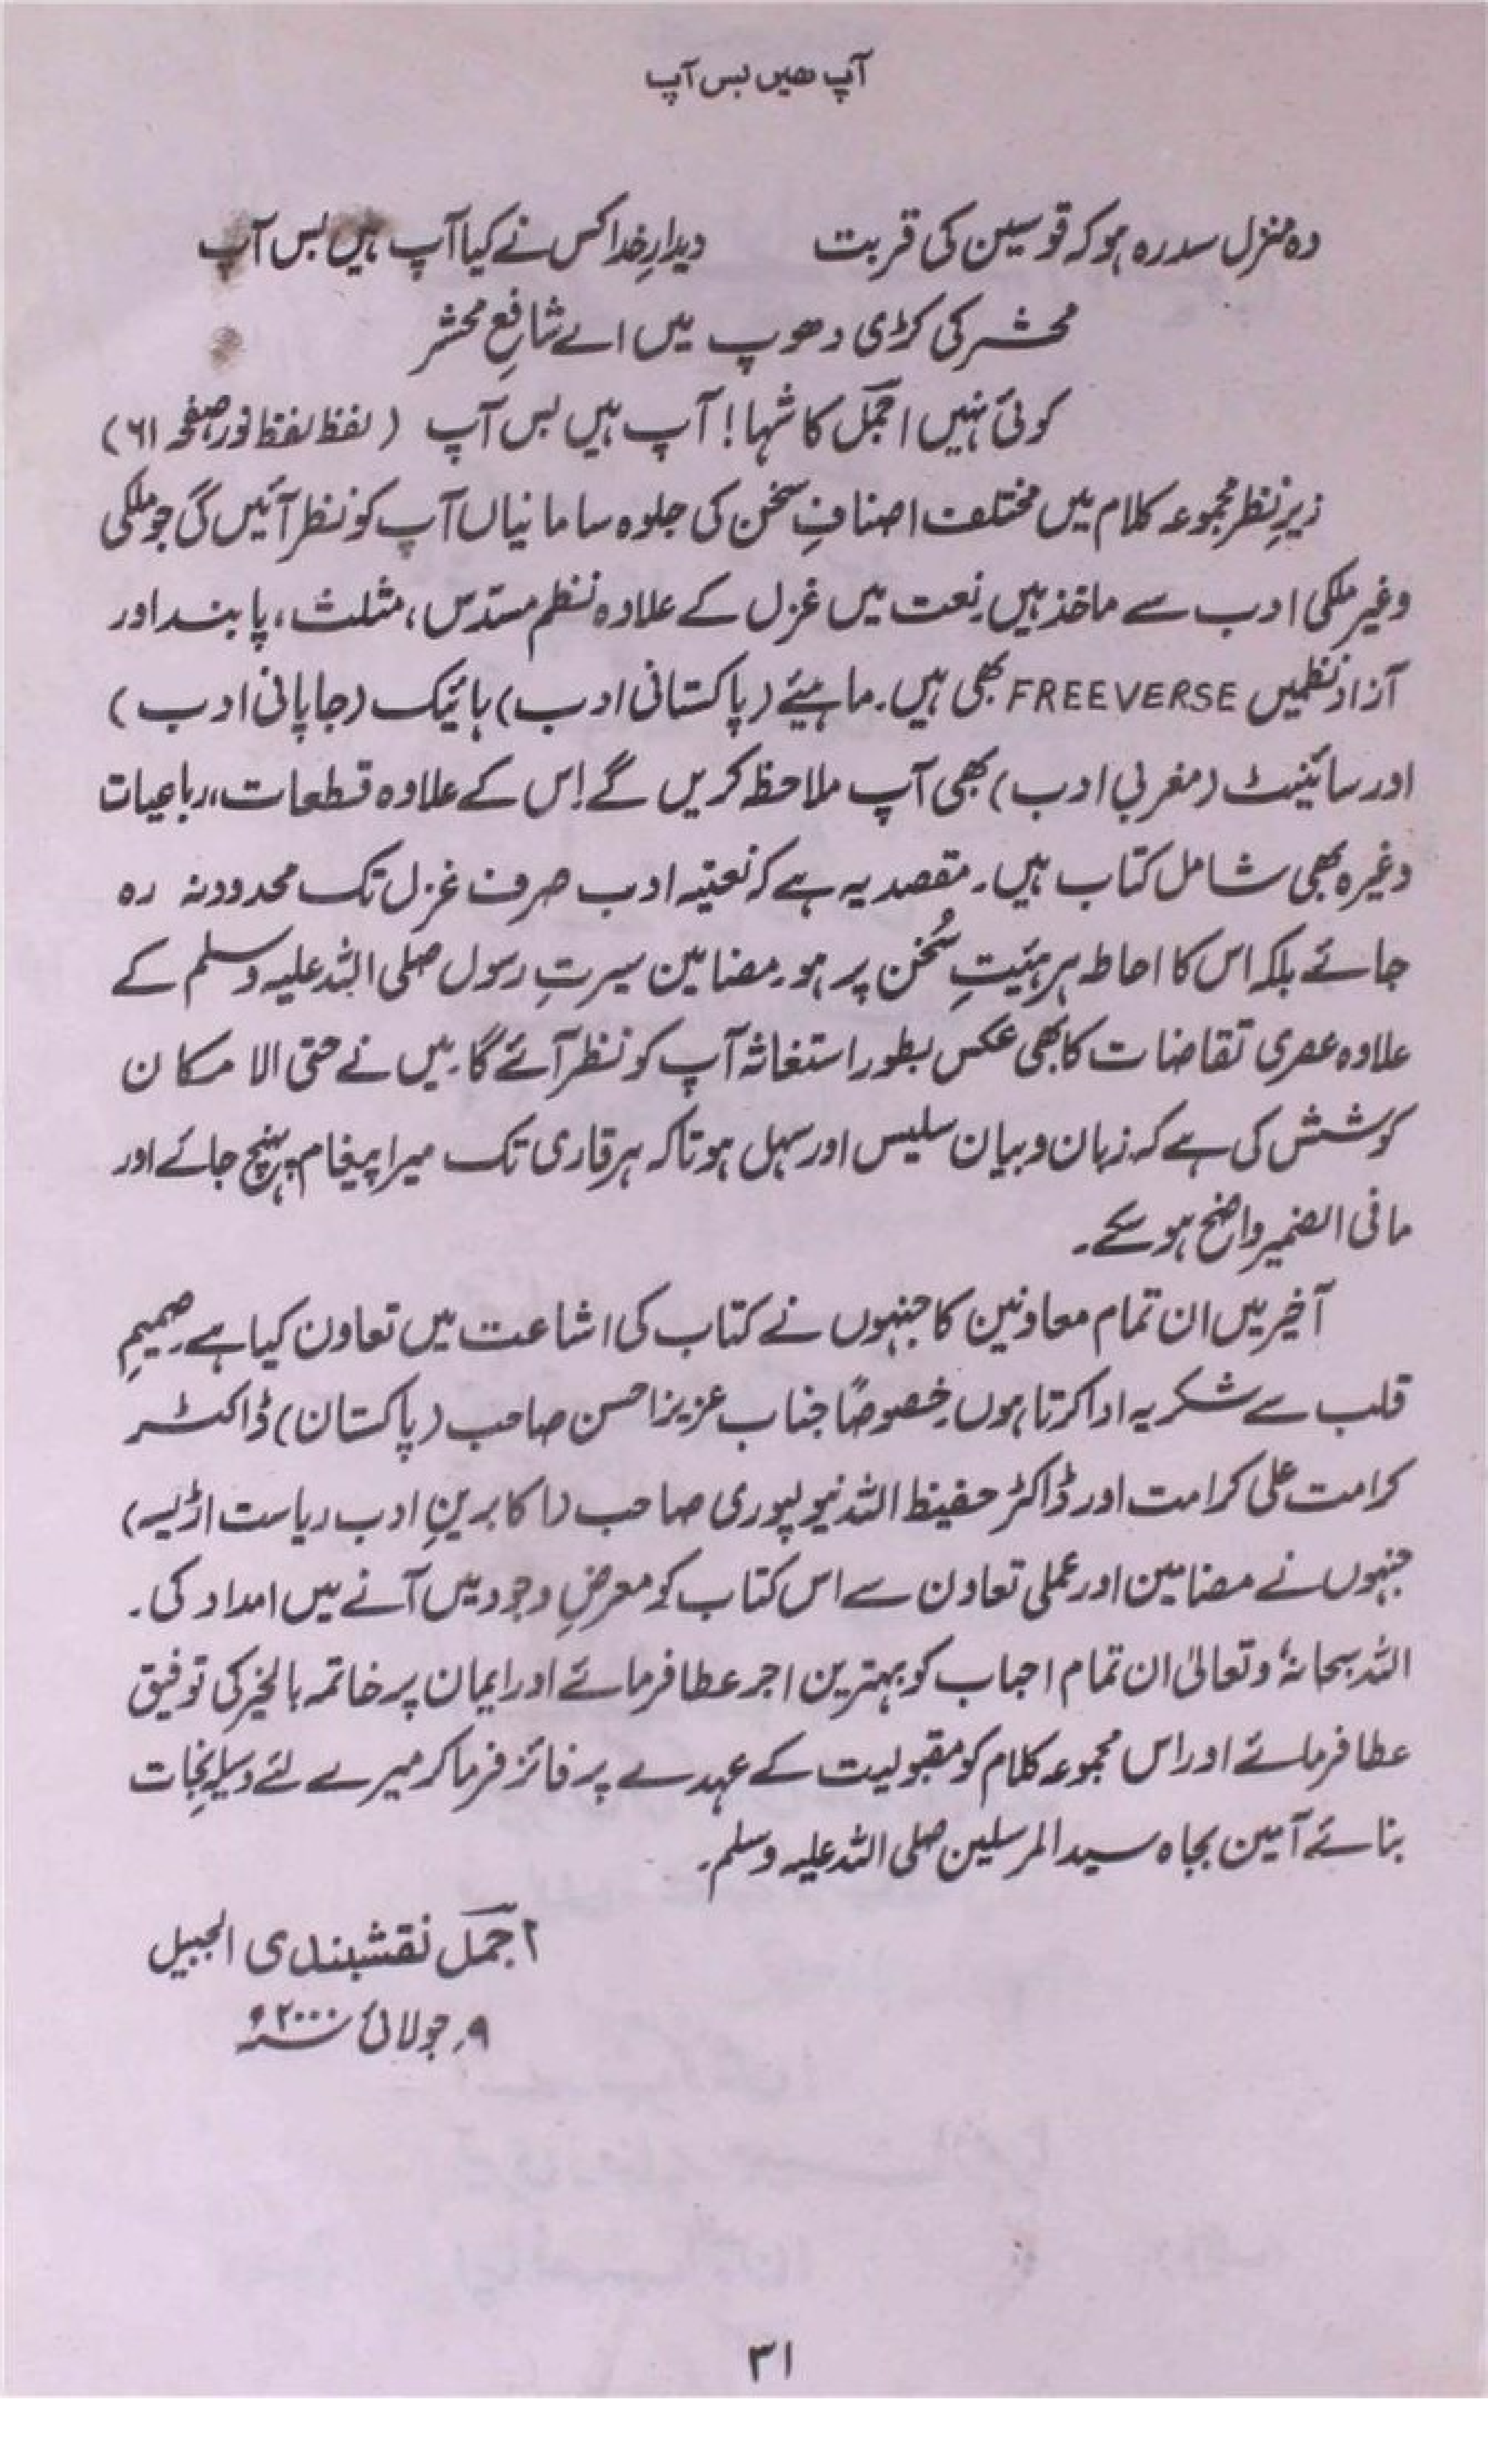 آپ ھیں بس آپ
وہ منزل سدرہ ہو کہ قوسین کی قربت دیدارِ خدا کس نے کیا آپ ہیں بس آپ
محشر کی کڑی دھوپ میں اے شافعِ محشر
کوئی نہیں اجمل کا شہا! آپ ہیں بس آپ (لفظ لفظ نور صفحہ ۶۱)
زیرِ نظر مجموعہ کلام میں مختلف اصنافِ سخن کی جلوہ سامانیاں آپ کو نظر آئیں گی جو ملکی
وغیر ملکی ادب سے ماخذ ہیں۔ نعت میں غزل کے علاوہ نظم مسدّس، مثلث، پابند اور
آزاد نظمیں FREEVERSE بھی ہیں۔ ماہیئے (پاکستانی ادب) ہائیک (جاپانی ادب)
اور سائینٹ (مغربی ادب) بھی آپ ملاحظہ کریں گے۔ اِس کے علاوہ قطعات، رباعیات
وغیرہ بھی شامل کتاب ہیں۔ مقصد یہ ہے کہ نعتیہ ادب صرف غزل تک محدود نہ رہ
جائے بلکہ اس کا احاطہ ہر ہئیتِ سُخن پر ہو۔ مضامین سیرتِ رسول صلی اللہ علیہ وسلم کے
علاوہ عصری تقاضات کا بھی عکس بطور استغاثہ آپ کو نظر آئے گا۔ میں نے حتی الامکان
کوشش کی ہے کہ زبان و بیان سلیس اور سہل ہو تاکہ ہر قاری تک میرا پیغام پہنچ جائے اور
مافی الضمیر واضح ہو سکے۔
آخیر میں ان تمام معاونین کا جنہوں نے کتاب کی اشاعت میں تعاون کیا ہے۔ صمیمِ
قلب سے شکریہ ادا کرتا ہوں۔ خصوصاً جناب عزیز احسن صاحب (پاکستان) ڈاکٹر
کرامت علی کرامت اور ڈاکٹر حفیظ اللہ نیولپوری صاحب (اکابرینِ ادب ریاست اڑیسہ)
جنہوں نے مضامین اور عملی تعاون سے اس کتاب کو معرضِ وجود میں آنے میں امداد کی۔
اللہ سبحانہٗ وتعالیٰ ان تمام احباب کو بہترین اجر عطا فرمائے اور ایمان پر خاتمہ بالخیر کی توفیق
عطا فرمائے اور اس مجموعہ کلام کو مقبولیت کے عہدے پر فائز فرما کر میرے لئے وسیلۂ نجات
بنائے آمین بجاہ سید المرسلین صلی اللہ علیہ وسلم۔
اجمل نقشبندی الجبیل
۹؍ جولائی ۲۰۰۰ء
۳۱